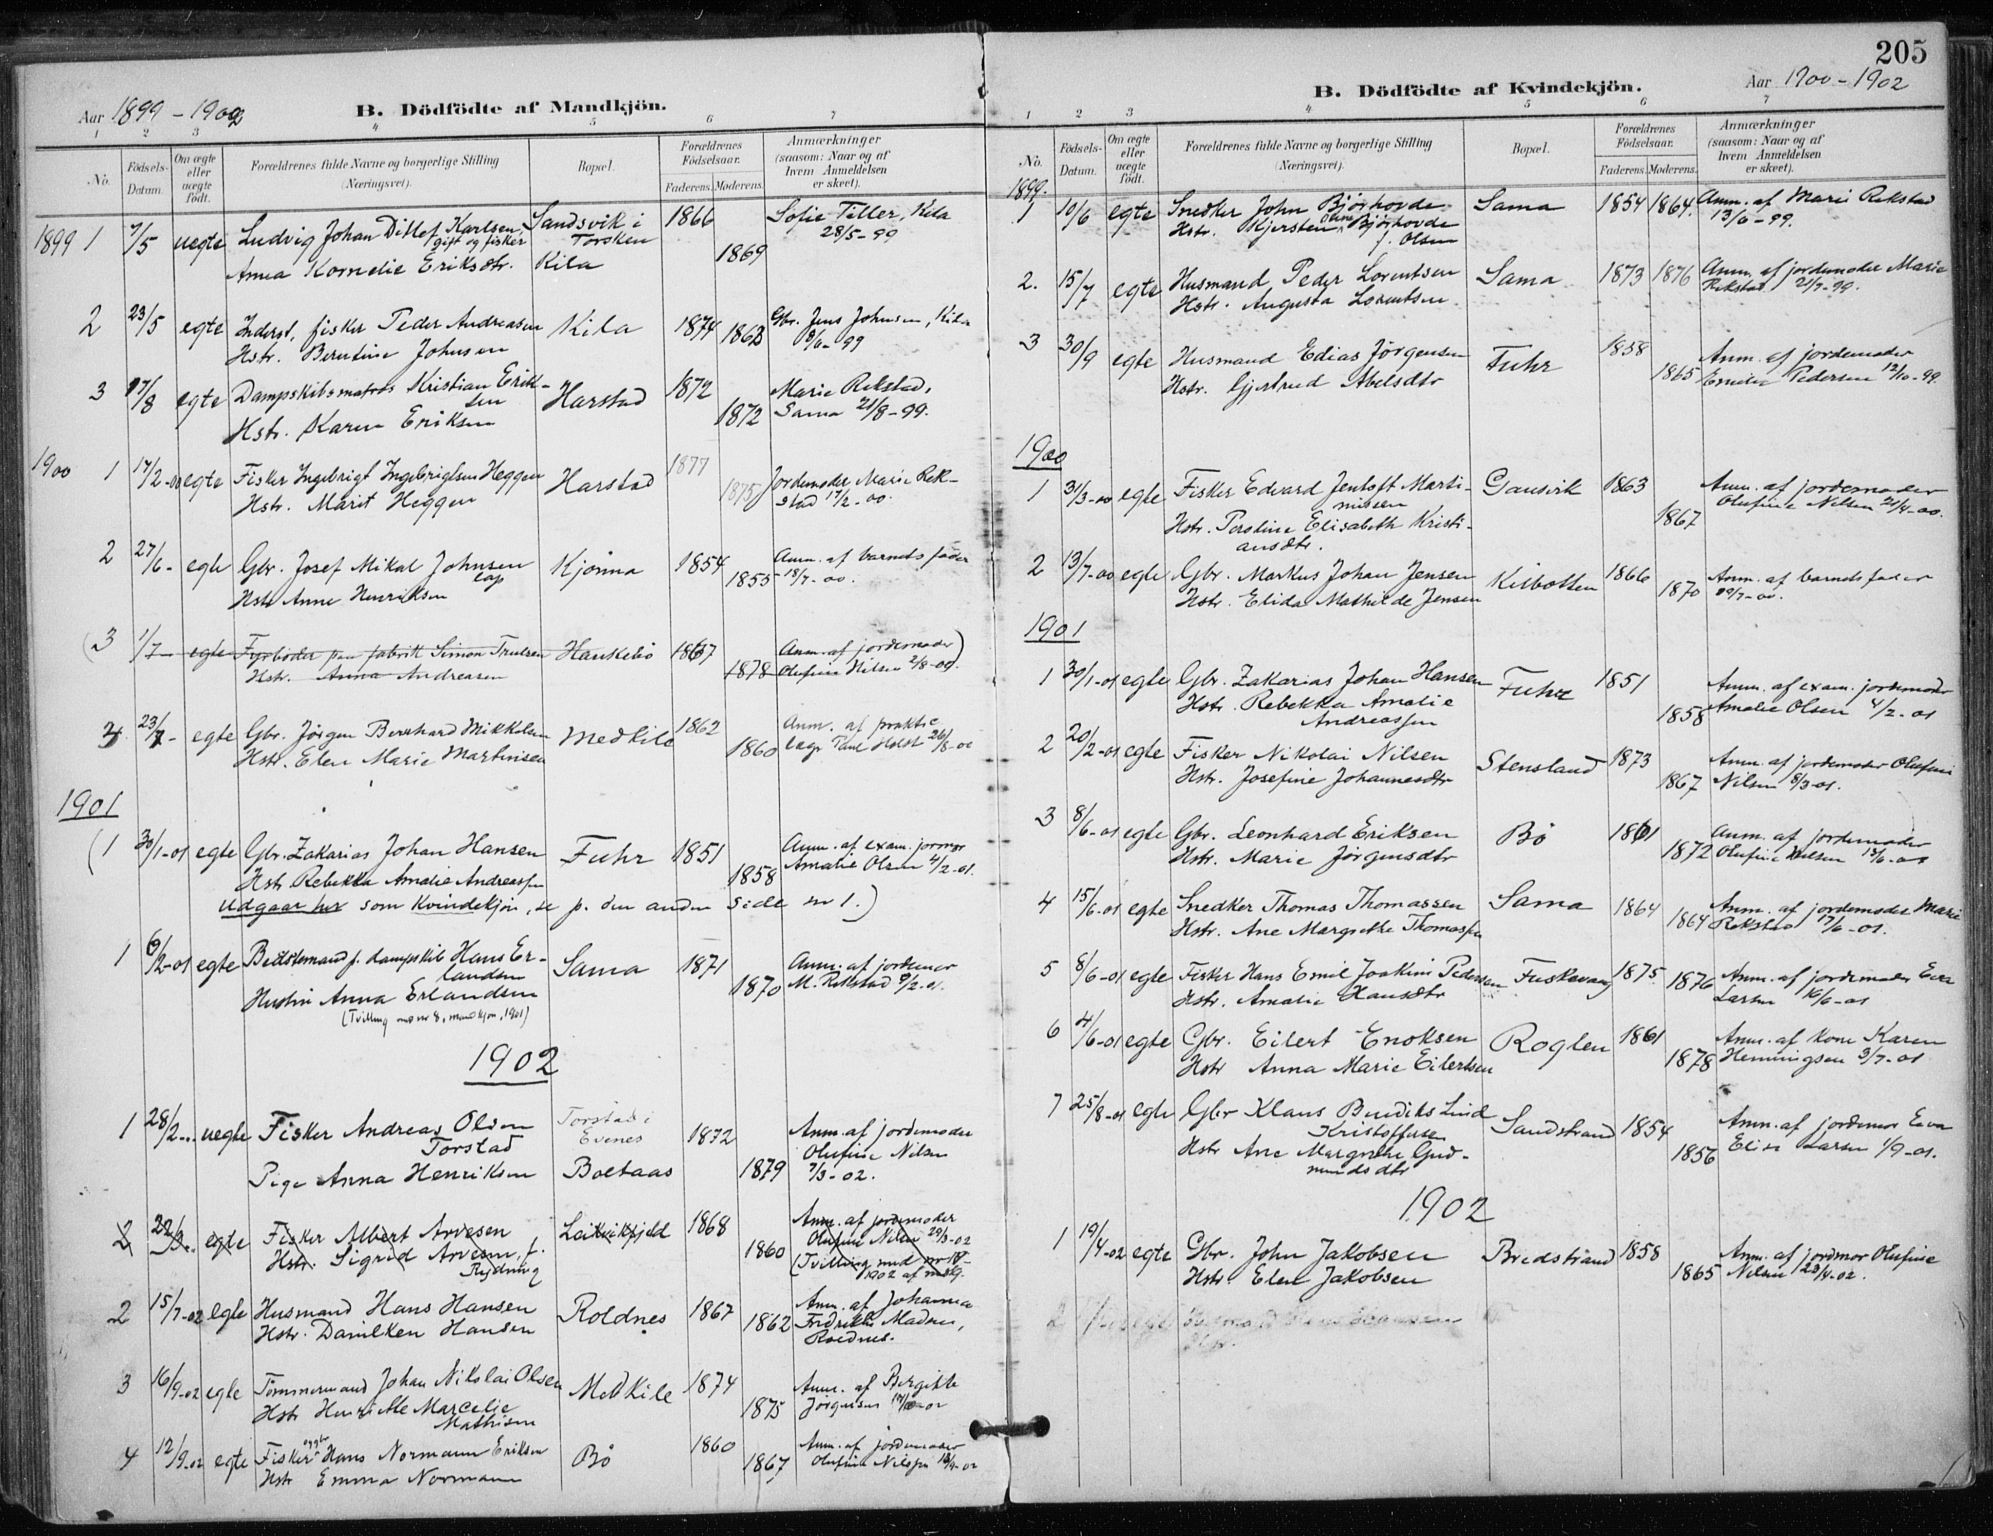 Aar 1899 - 1902
B. Dödfödte af Mandkjön.
1 2 3 4 5 6 7
No.
Födsels-Datum.
Om ægte eller uægte födt.
Forældrenes fulde Navne og borgerlige Stilling
(Næringsvei).
Bopæl.
Forældrenes Födselsaar.
Faderens. Moderens.
Anmærkninger
(saasom: Naar og af
hvem Anmeldelsen
er skeet).
1899 1 7/5 uegte Ludvig Johan Ditlef Karlsen, Sandsvik i 1866 Sofie Tiller, Kila
gift og fisker Torsken 28/5-99
Anna Kornelie Eriksdtr. Kila 1869
2 23/5 egte Inderst, fisker Peder Andreasen Kila 1874 1863 Gbr. Jens Johnsen, Kila
Hstr. Berntine Johnsen 8/6-99
3 17/8 egte Dampskibsmatros Kristian Erik- Harstad 1872 Marie Rekstad,
sen
Hstr. Karen Eriksen 1872 Sama 21/8-99.
1900 1 17/2-00 egte Fisker Ingebrigt Ingebrigtsen Heggen Harstad 1877 Jordemoder Marie Rek-
Hstr. Marit Heggen 1875 stad 17/2-00.
2 27/6- egte Gbr. Josef Mikal Johnsen Kjønna 1854 Anm. af barnets fader
lap
Hstr Anne Henriksen 1855 18/7-00.
(3 1/7- egte Fyrbøder paa fabrik Simon Trulsen Haukebø 1867 Anm. af jordemoder)
Hstr. Anna Andreasen 1878 Olufine Nilsen 2/8-00.
3 23/7- egte Gbr. Jørgen Bernhard Mikkelsen Medkile 1862 Anm. af prakt.
Hstr. Elen Marie Martinsen 1860 læge Paul Holst 26/8-00
1901
(1 30/1-01 egte Gbr. Zakarias Johan Hansen Fuhr 1851 Anm. af exam. jormor
Hstr Rebekka Amalie Andreassen 1858 Amalie Olsen 4/2-01.
udgaar her som kvindekjøn, se p. den anden side nr 1.)
1 6/2-01 egte Bedstemand p. dampskib Hans Er- Sama 1871 Anm. af jordemor
landsen
Hustru Anna Erlandsen 1870 M. Rekstad 9/2-01.
(Tvilling med nr 8, mandkjøn, 1901)
1902
1 28/2- uegte Fisker Andreas Olsen Torstad i 1872 Anm. af jordemoder
Torstad Evenes Olufine Nilsen
Pige Anna Henriksen Boltaas 1879 7/3-02.
2 22/3 egte Fisker Albert Arvesen Leikvikfjeld 1868 Anm. af jordemoder
Hstr. Sigrid Arvesen, f. 1860 Olufine Nilsen 29/3-02
Rydning (Tvilling med
1902 af mdkj.
2 15/7-02 egte Husmand Hans Hansen Roldnes 1867 Anm. af Johanna
Hstr. Danilken Hansen 1862 Fredrikke Madsen,
Roldnes.
3 16/9-02 egte Tømmermand Johan Nikolai Olsen Medkile 1874 Anm. af Bergitte
Hstr Henriette Marcelie 1875 Jørgensen
Mathisen
4 12/9-02 egte Fisker og gbr Hans Normann Eriksen Bø 1860 Anm. af jordemoder
Hstr Emma Normann 1867 Olufine Nilsen 18/9-02
205
B. Dödfödte af Kvindekjön.
Aar 1900 - 1902
1 2 3 4 5 6 7
No.
Födsels-Datum.
Om ægte eller uægte födt.
Forældrenes fulde Navne og borgerlige Stilling
(Næringsvei).
Bopæl.
Forældrenes Födselsaar.
Faderens. Moderens.
Anmærkninger
(saasom: Naar og af
hvem Anmeldelsen
er skeet).
1899.
1 10/6 egte Snedker John Bjørhovde Sama 1854 1864. Anm. af Marie Rekstad
Hstr. Kjersten Oline Bjørhovde 13/6-99.
f. Olsen
2. 15/7 egte Husmand Peder Lorentsen Sama 1873 1876 Anm. af jordemoder Marie
Hstr. Augusta Lorentsen Rekstad 21/7-99.
3 30/9 egte Husmand Edias Jørgensen Fuhr 1858 Anm. af jordemoder
Hstr. Gjertrud Abelsdtr 1865 Emilie Pedersen 12/10-99.
1900
1 31/3-00 egte Fisker Edvard Jentoft Marti- Gausvik 1863 Anm. af jordemoder
nussen
Hstr. Peroline Elisabeth Kristi- 1867 Olufine Nilsen 21/4-00.
ansdtr.
2 13/7-00 egte Gbr. Markus Johan Jensen Kilbotten 1866 Anm. af barnets fader
Hstr. Elida Mathilde Jensen 1870 29/7-00.
1901
1 30/1-01 egte Gbr. Zakarias Johan Hansen Fuhr 1851 Anm. af exam. jordemoder
Hstr. Rebekka Amalie 1858 Amalie Olsen 4/2-01
Andreassen
2 20/2-01 egte Fisker Nikolai Nilsen Stensland 1873 Anm. af jordemoder Olufine
Hstr. Josefine Johannesdtr 1867 Nilsen 8/3-01.
3 8/6-01 egte Gbr. Leonhard Eriksen Bø 1861 Anm. af jordemoder
Hstr. Marie Jørgensdtr 1872 Olufine Nilsen 13/6-01
4 15/6-01 egte Snedker Thomas Thomassen Sama 1864 Anm. af jordemoder Marie
Hstr. Ane Margrethe Thomassen 1864 Rekstad 17/6-01.
5 8/6-01 egte Fisker Hans Emil Joakim Pedersen Fuskevaag 1875. 1876 Anm. af jordemoder Eva
Hstr. Amalie Hansdtr Larsen 16/6-01
6 4/6-01 egte Gbr. Eilert Enoksen Roglen 1861 Anm. af kone Karen
Hstr Anna Marie Eilertsen 1878 Henningsen 3/7-01
7 25/8-01 egte Gbr Klaus Bendiks Lind Sandstrand 1854 Anm. af jordemor Eva
Kristoffersen
Hstr Ane Margrethe Gud- 1856 Elise Larsen 1/9-01.
mundsdtr
1902
1 19/4-02 egte Gbr. John Jakobsen Bredstrand 1858 Anm. af jordmor Olufine
Hstr Elen Jakobsen 1865 Nilsen 23/4-02.